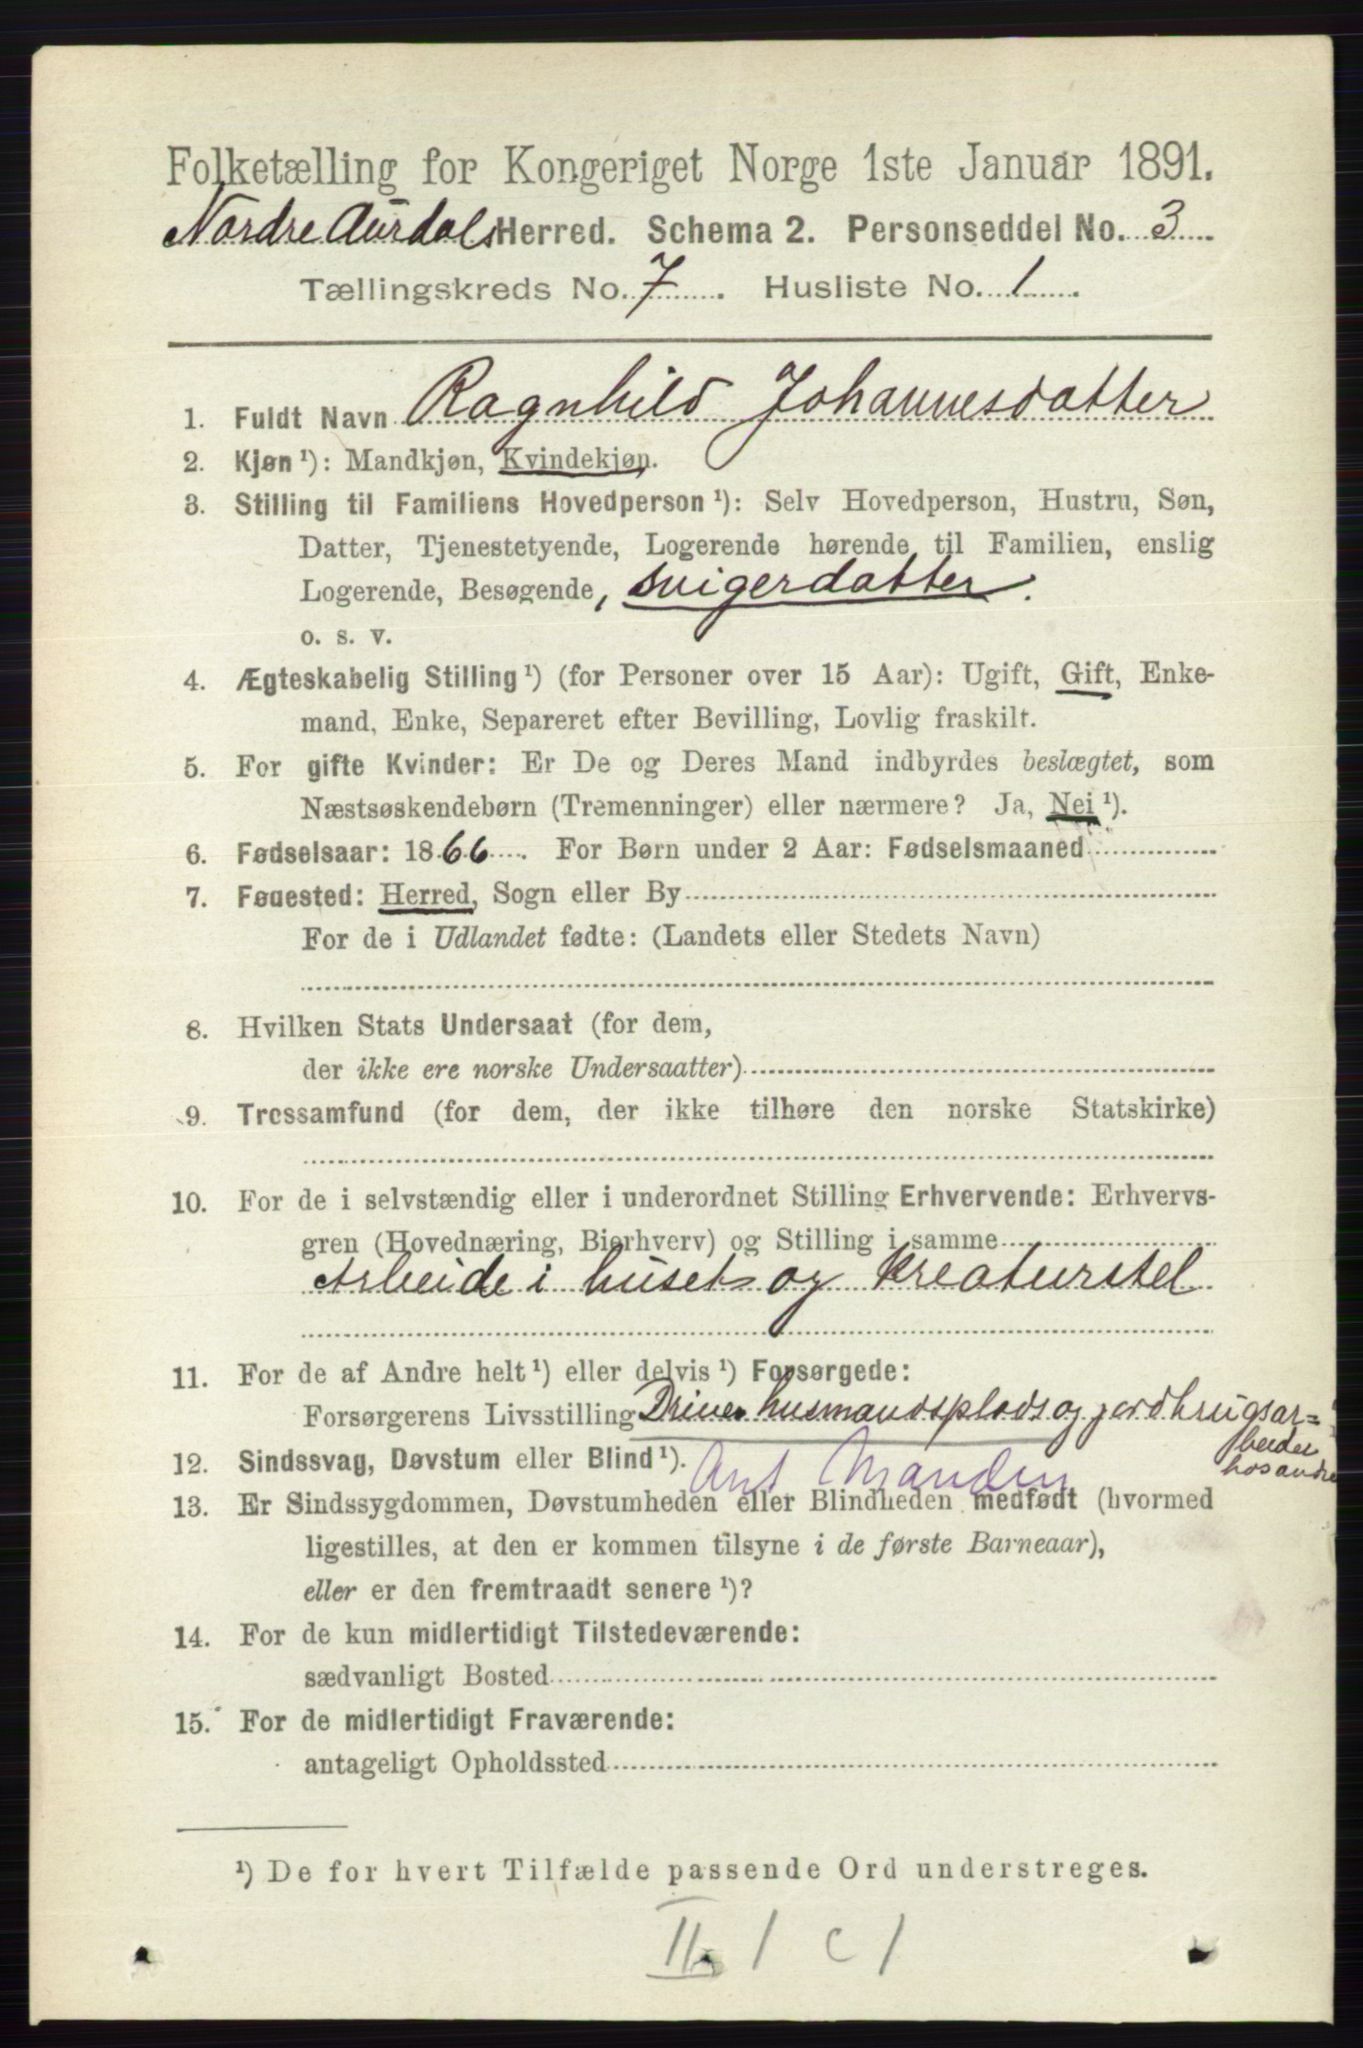 Folketælling for Kongeriget Norge 1ste Januar 1891.
Nordre Aurdals Herred. Schema 2. Personseddel No. 3
Tællingskreds No. 7. Husliste No. 1.
1. Fuldt Navn Ragnhild Johannesdatter
2. Kjøn ¹): Mandkjøn, Kvindekjøn.
3. Stilling til Familiens Hovedperson ¹): Selv Hovedperson, Hustru, Søn,
Datter, Tjenestetyende, Logerende hørende til Familien, enslig
Logerende, Besøgende, svigerdatter.
o. s. v.
4. Ægteskabelig Stilling ¹) (for Personer over 15 Aar): Ugift, Gift, Enke-
mand, Enke, Separeret efter Bevilling, Lovlig fraskilt.
5. For gifte Kvinder: Er De og Deres Mand indbyrdes beslægtet, som
Næstsøskendebørn (Tremenninger) eller nærmere? Ja, Nei ¹).
6. Fødselsaar: 1866. For Børn under 2 Aar: Fødselsmaaned
7. Fødested: Herred, Sogn eller By
For de i Udlandet fødte: (Landets eller Stedets Navn)
8. Hvilken Stats Undersaat (for dem,
der ikke ere norske Undersaatter)
9. Trossamfund (for dem, der ikke tilhøre den norske Statskirke)
10. For de i selvstændig eller i underordnet Stilling Erhvervende: Erhvervs-
gren (Hovednæring, Bierhverv) og Stilling i samme
Arbeide i huset og Kreaturstel
11. For de af Andre helt ¹) eller delvis ¹) Forsørgede:
Forsørgerens Livsstilling Driver husmandsplads og jordbrugsar=
beider
hos andre
12. Sindssvag, Døvstum eller Blind ¹). Manden
13. Er Sindssygdommen, Døvstumheden eller Blindheden medfødt (hvormed
ligestilles, at den er kommen tilsyne i de første Barneaar),
eller er den fremtraadt senere ¹)?
14. For de kun midlertidigt Tilstedeværende:
sædvanligt Bosted
15. For de midlertidigt Fraværende:
antageligt Opholdssted
¹) De for hvert Tilfælde passende Ord understreges.
II. 1 c 1